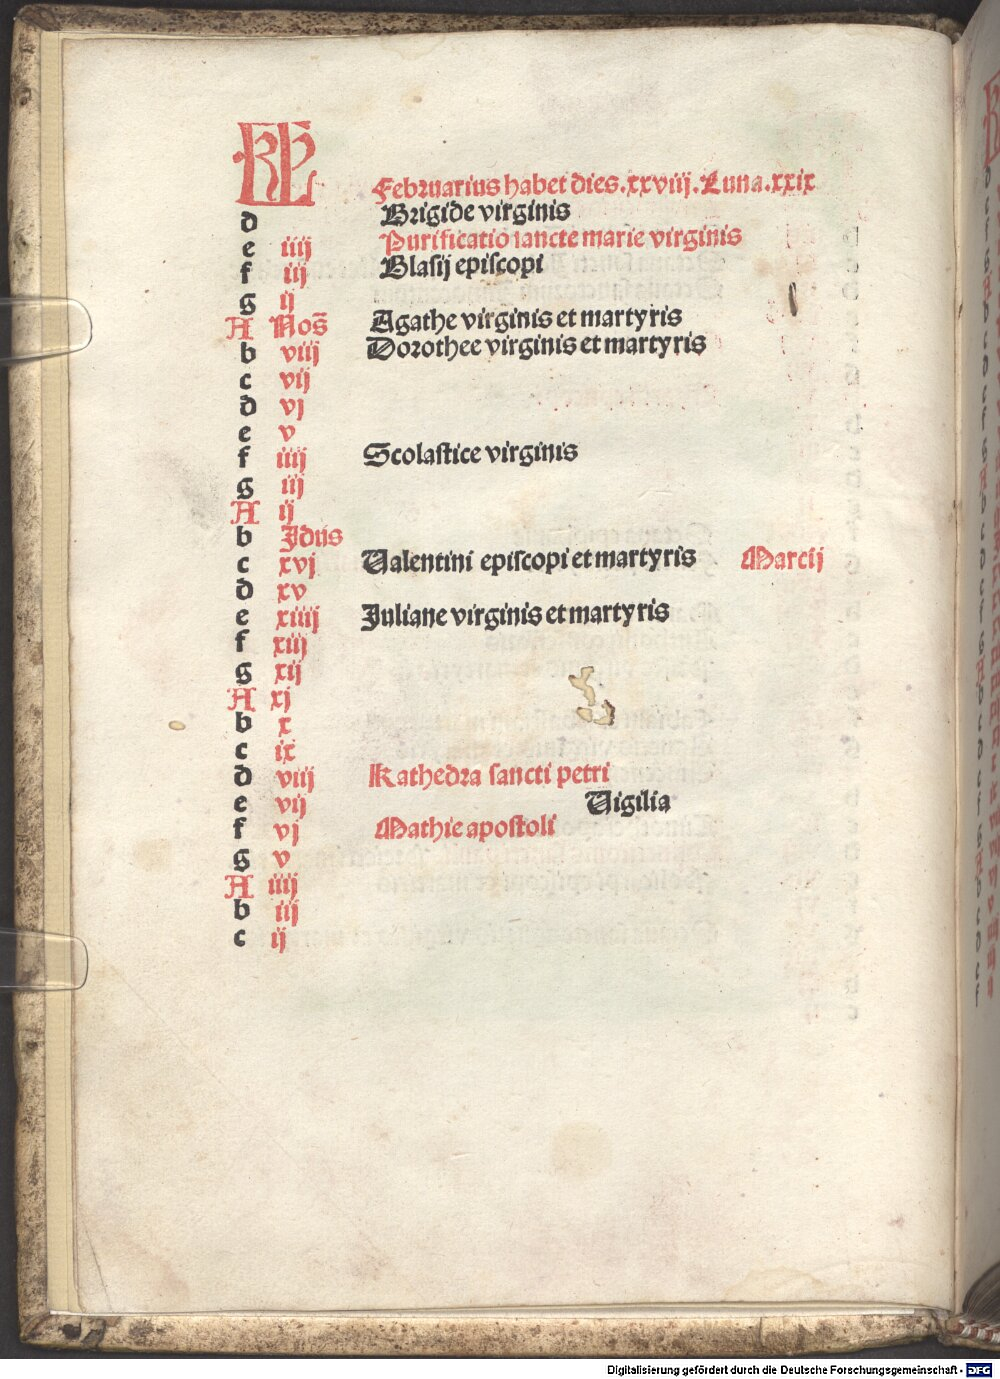 KL
Februarius habet dies.xxviij.Luna.xxix
d Brigide virginis
e iiij Purificatio sancte marie virginis
f iij Blasij episcopi
g ij
A Nos̄ Agathe virginis et martyris
b viij Dorothee virginis et martyris
c vij
d vj
e v
f iiij Scolastice virginis
g iij
A ij
b Idus
c xvj Valentini episcopi et martyris Marcij
d xv
e xiiij Juliane virginis et martyris
f xiij
g xij
A xj
b x
c ix
d viij Kathedra sancti petri
e vij Vigilia
f vj Mathie apostoli
g v
A iiij
b iij
c ij
Digitalisierung gefördert durch die Deutsche Forschungsgemeinschaft - DFG